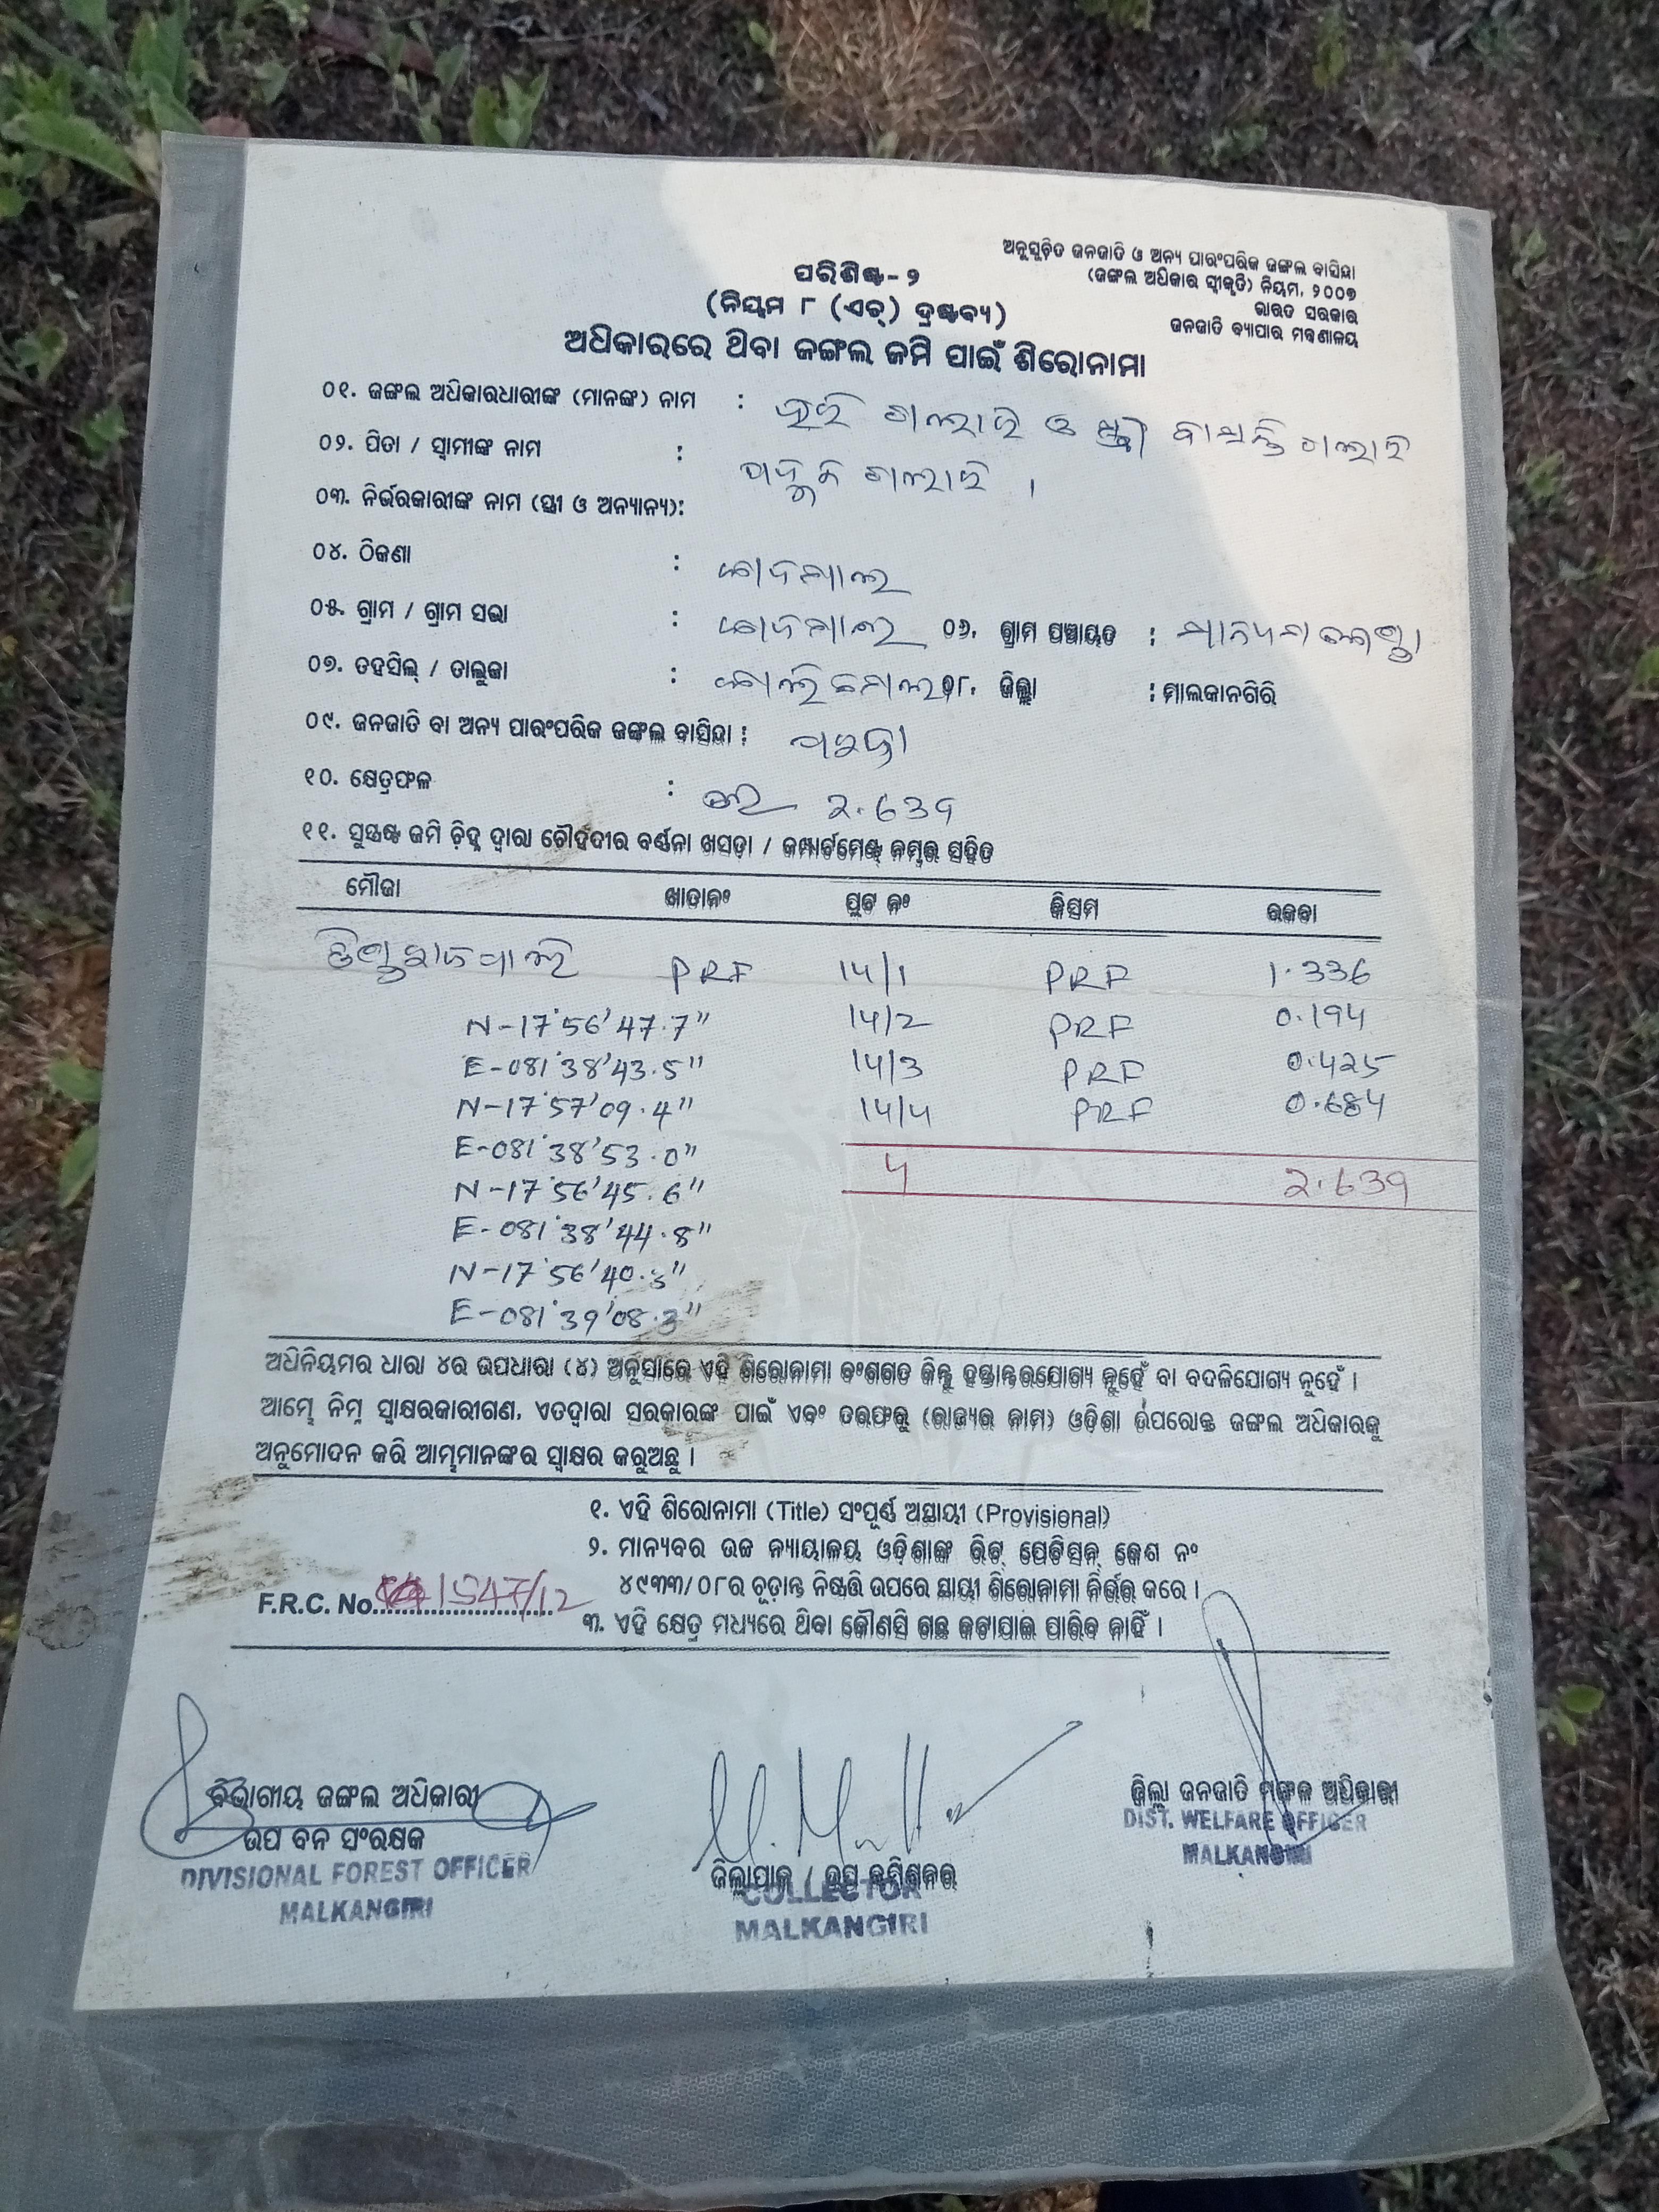 ଅନୁସୂଚିତ ଜନଜାତି ଓ ଅନ୍ୟ ପାରଂପରିକ ଜଙ୍ଗଲ ବାସିନ୍ଦା
(ଜଙ୍ଗଲ ଅଧିକାର ସ୍ୱୀକୃତି) ନିୟମ, ୨୦୦୭
ଭାରତ ସରକାର
ଜନଜାତି ବ୍ୟାପାର ମନ୍ତ୍ରଣାଳୟ
ପରିଶିଷ୍ଟ-୨
(ନିୟମ ୮ (ଏଚ୍) ଦ୍ରଷ୍ଟବ୍ୟ)
ଅଧିକାରରେ ଥିବା ଜଙ୍ଗଲ ଜମି ପାଇଁ ଶିରୋନାମା
୦୧. ଜଙ୍ଗଲ ଅଧିକାରଧାରୀଙ୍କ (ମାନଙ୍କ) ନାମ :
୦୨. ପିତା / ସ୍ୱାମୀଙ୍କ ନାମ :
୦୩. ନିର୍ଭରକାରୀଙ୍କ ନାମ (ସ୍ତ୍ରୀ ଓ ଅନ୍ୟାନ୍ୟ):
୦୪. ଠିକଣା :
୦୫. ଗ୍ରାମ / ଗ୍ରାମ ସଭା : ୦୬. ଗ୍ରାମ ପଞ୍ଚାୟତ :
୦୭. ତହସିଲ୍ / ତାଲୁକା : ୦୮. ଜିଲ୍ଲା : ମାଲକାନଗିରି
୦୯. ଜନଜାତି ବା ଅନ୍ୟ ପାରଂପରିକ ଜଙ୍ଗଲ ବାସିନ୍ଦା :
୧୦. କ୍ଷେତ୍ରଫଳ : 2.639
୧୧. ସୁସ୍ପଷ୍ଟ ଜମି ଚିହ୍ନ ଦ୍ୱାରା ଚୌହଦୀର ବର୍ଣ୍ଣନା ଖସଡ଼ା / କମ୍ପାର୍ଟମେଣ୍ଟ୍ ନମ୍ବର ସହିତ
ମୌଜା ଖାତାନଂ ପ୍ଲଟ ନଂ କିସମ ରକବା
PRF 14/1 PRF 1.336
N-17°56'47.7" 14/2 PRF 0.194
E-081°38'43.5" 14/3 PRF 0.425
N-17°57'09.4" 14/4 PRF 0.684
E-081°38'53.0"
4 2.639
N-17°56'45.6"
E-081°38'44.8"
N-17°56'40.3"
E-081°39'08.3"
ଅଧିନିୟମର ଧାରା ୪ର ଉପଧାରା (୪) ଅନୁସାରେ ଏହି ଶିରୋନାମା ବଂଶଗତ କିନ୍ତୁ ହସ୍ତାନ୍ତରଯୋଗ୍ୟ ନୁହେଁ ବା ବଦଳିଯୋଗ୍ୟ ନୁହେଁ ।
ଆମ୍ଭେ ନିମ୍ନ ସ୍ୱାକ୍ଷରକାରୀଗଣ, ଏତଦ୍ୱାରା ସରକାରଙ୍କ ପାଇଁ ଏବଂ ତରଫରୁ (ରାଜ୍ୟର ନାମ) ଓଡ଼ିଶା ଉପରୋକ୍ତ ଜଙ୍ଗଲ ଅଧିକାରକୁ
ଅନୁମୋଦନ କରି ଆମ୍ଭମାନଙ୍କର ସ୍ୱାକ୍ଷର କରୁଅଛୁ ।
୧. ଏହି ଶିରୋନାମା (Title) ସଂପୂର୍ଣ୍ଣ ଅସ୍ଥାୟୀ (Provisional)
୨. ମାନ୍ୟବର ଉଚ୍ଚ ନ୍ୟାୟାଳୟ ଓଡ଼ିଶାଙ୍କ ରିଟ୍ ପେଟିସନ୍ କେଶ ନଂ
୪୯୩୩/୦୮ର ଚୂଡ଼ାନ୍ତ ନିଷ୍ପତ୍ତି ଉପରେ ସ୍ଥାୟୀ ଶିରୋନାମା ନିର୍ଭର କରେ ।
F.R.C. No. 1547/12
୩. ଏହି କ୍ଷେତ୍ର ମଧ୍ୟରେ ଥିବା କୌଣସି ଗଛ କଟାଯାଇ ପାରିବ ନାହିଁ ।
ବିଭାଗୀୟ ଜଙ୍ଗଲ ଅଧିକାରୀ
ଉପ ବନ ସଂରକ୍ଷକ
DIVISIONAL FOREST OFFICER
MALKANGIRI
ଜିଲ୍ଲାପାଳ / ଉପ କମିଶନର
COLLECTOR
MALKANGIRI
ଜିଲ୍ଲା ଜନଜାତି ମଙ୍ଗଳ ଅଧିକାରୀ
DIST. WELFARE OFFICER
MALKANGIRI